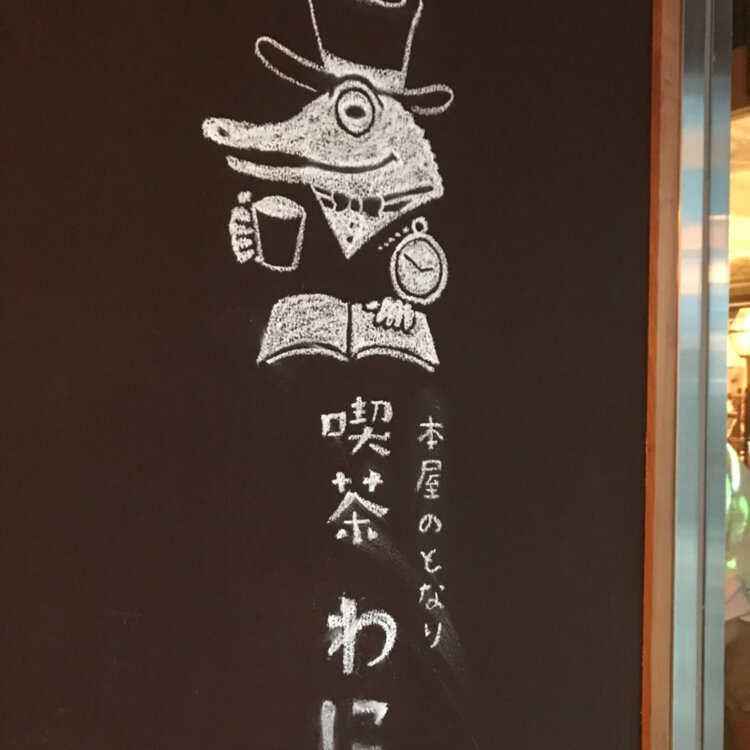 本屋のとなり
喫茶 わに